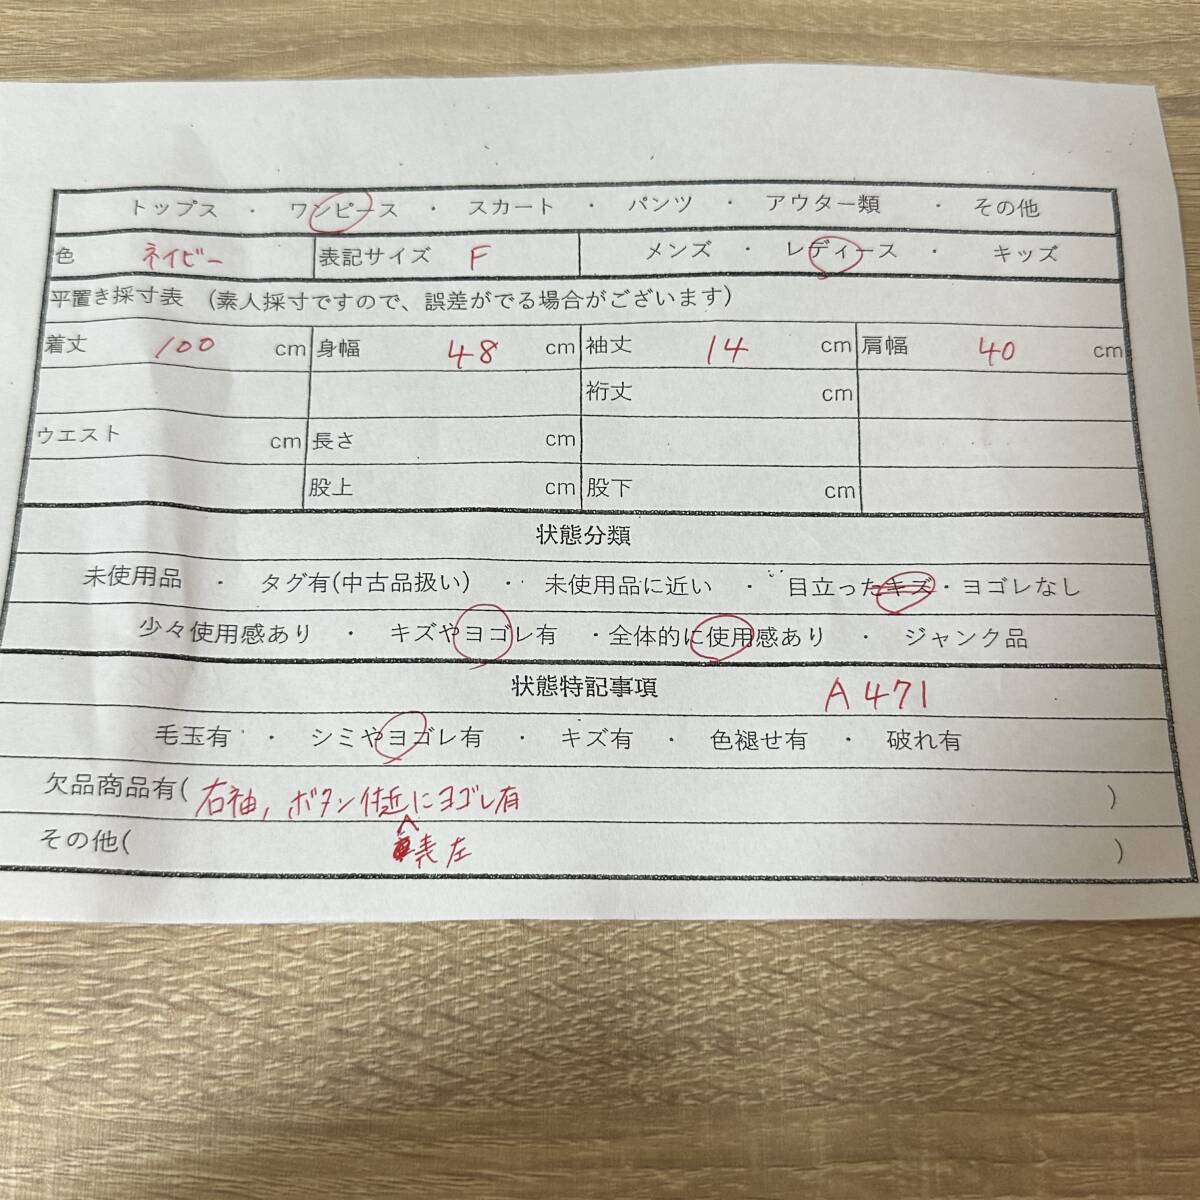 トップス ・ ワンピース ・ スカート ・ パンツ ・ アウター類 ・ その他
色 ネイビー 表記サイズ F メンズ ・ レディース ・ キッズ
平置き採寸表 (素人採寸ですので、誤差がでる場合がございます)
着丈 100 cm 身幅 48 cm 袖丈 14 cm 肩幅 40 cm
裄丈 cm
ウエスト cm 長さ cm
股上 cm 股下 cm
状態分類
未使用品 ・ タグ有(中古品扱い) ・ 未使用品に近い ・ 目立ったキズ・ヨゴレなし
少々使用感あり ・ キズやヨゴレ有 ・全体的に使用感あり ・ ジャンク品
状態特記事項 A471
毛玉有 ・ シミやヨゴレ有 ・ キズ有 ・ 色褪せ有 ・ 破れ有
欠品商品有( 右袖, ボタン付近にヨゴレ有 )
その他( 表左 )